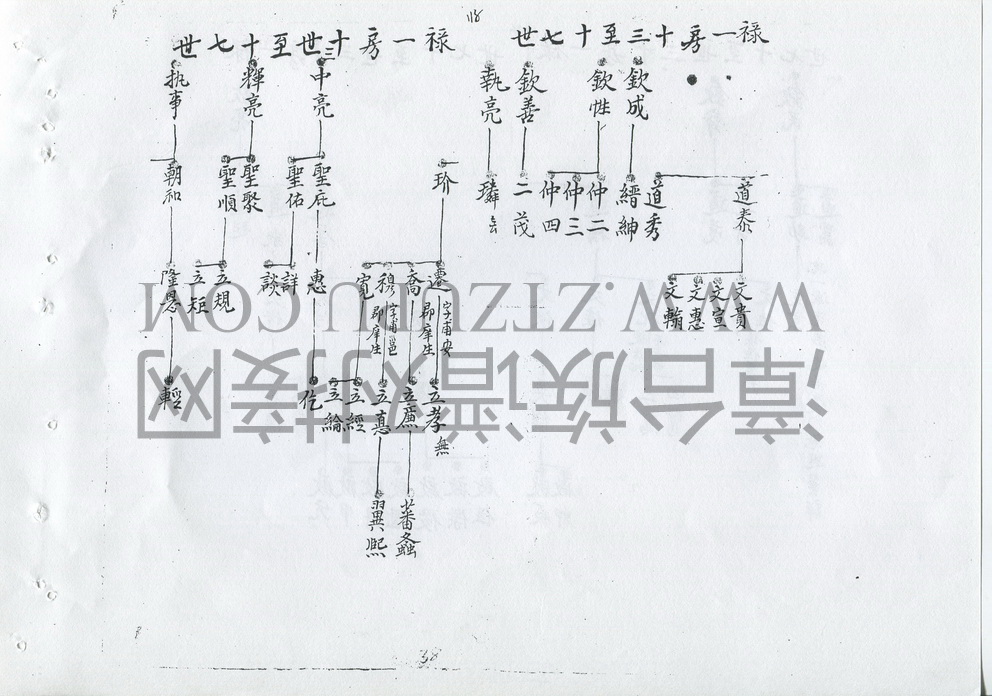 118
禄一房十三至十七世
道泰
文貴
文宣
文惠
文翰
道秀
欽成
縉紳
欽性
仲二
仲三
仲四
欽善
二茂
執亮
璘
玠
遷
字甫安
郡庠生
立孝
無
喬
立薦
蕃螽
穆
字甫邕
郡庠生
立惪
翼熙
寬
立經
立綸
禄一房十三世至十七世
中亮
聖庇
惠
仡
聖佑
詳
談
輝亮
聖聚
聖順
立規
立矩
执事
朝和
隆恩
輕
38
WWW.ZTZUPU.COM
漳台族谱对接网